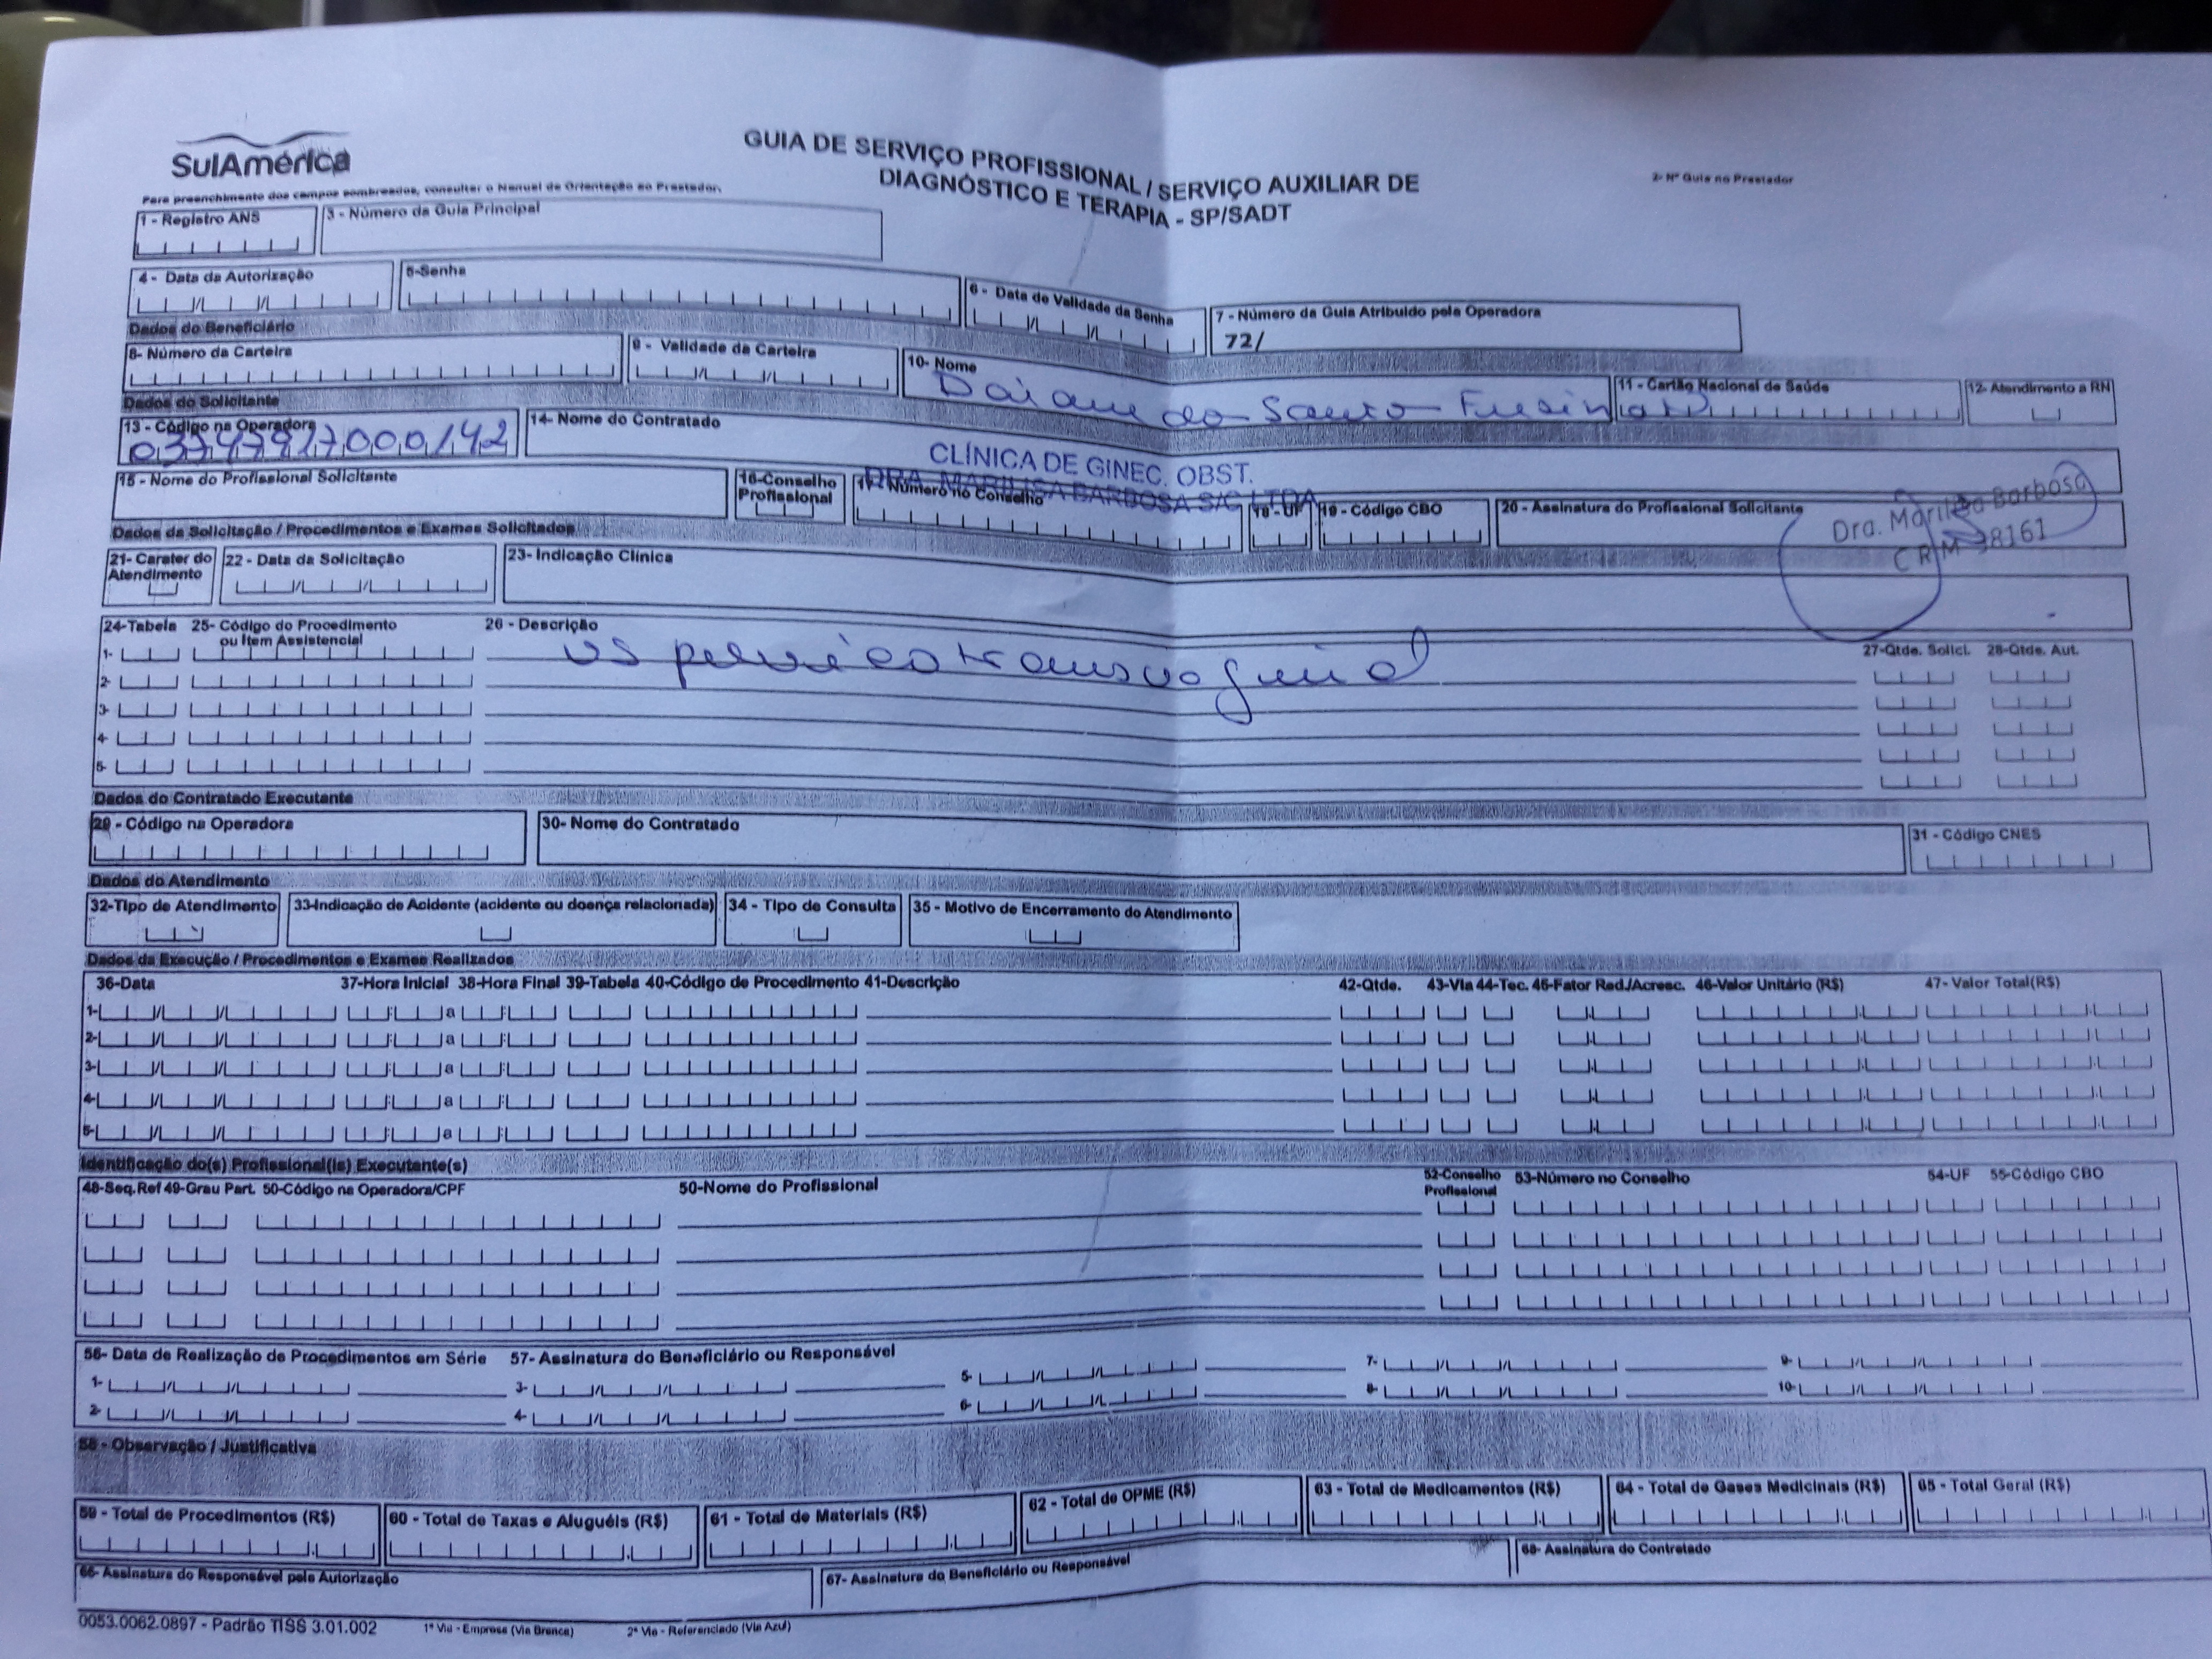 SulAmérica
GUIA DE SERVIÇO PROFISSIONAL / SERVIÇO AUXILIAR DE
DIAGNÓSTICO E TERAPIA - SP/SADT
2- Nº Guia no Prestador
Para preenchimento dos campos sombreados, consultar o Manual de Orientação ao Prestador.
1 - Registro ANS
3 - Número da Guia Principal
4 - Data da Autorização
5-Senha
6 - Data de Validade da Senha
7 - Número da Guia Atribuído pela Operadora
72/
Dados do Beneficiário
8- Número da Carteira
9 - Validade da Carteira
10- Nome
Daiane do
11 - Cartão Nacional de Saúde
12- Atendimento a RN
Dados do Solicitante
13 - Código na Operadora
14- Nome do Contratado
CLÍNICA DE GINEC. OBST.
15 - Nome do Profissional Solicitante
16-Conselho Profissional
17- Número no Conselho
18 - UF
19 - Código CBO
20 - Assinatura do Profissional Solicitante
Dra. Marilisa Barbosa
CRM 98161
Dados da Solicitação / Procedimentos e Exames Solicitados
21- Carater do Atendimento
22 - Data da Solicitação
23- Indicação Clínica
24-Tabela 25- Código do Procedimento ou Item Assistencial
26 - Descrição
27-Qtde. Solici. 28-Qtde. Aut.
1-
US pelvico transvaginal
2-
3-
4-
5-
Dados do Contratado Executante
29 - Código na Operadora
30- Nome do Contratado
31 - Código CNES
Dados do Atendimento
32-Tipo de Atendimento
33-Indicação de Acidente (acidente ou doença relacionada)
34 - Tipo de Consulta
35 - Motivo de Encerramento do Atendimento
Dados da Execução / Procedimentos e Exames Realizados
36-Data 37-Hora Inicial 38-Hora Final 39-Tabela 40-Código de Procedimento 41-Descrição 42-Qtde. 43-Via 44-Tec. 45-Fator Red./Acresc. 46-Valor Unitário (R$) 47- Valor Total(R$)
1- a
2- a
3- a
4- a
5- a
Identificação do(s) Profissional(is) Executante(s)
48-Seq.Ref 49-Grau Part. 50-Código na Operadora/CPF 50-Nome do Profissional 52-Conselho Profissional 53-Número no Conselho 54-UF 55-Código CBO
56- Data de Realização de Procedimentos em Série 57- Assinatura do Beneficiário ou Responsável
1- 3- 5- 7- 9-
2- 4- 6- 8- 10-
58 - Observação / Justificativa
59 - Total de Procedimentos (R$)
60 - Total de Taxas e Aluguéis (R$)
61 - Total de Materiais (R$)
62 - Total de OPME (R$)
63 - Total de Medicamentos (R$)
64 - Total de Gases Medicinais (R$)
65 - Total Geral (R$)
66- Assinatura do Responsável pela Autorização
67- Assinatura do Beneficiário ou Responsável
68- Assinatura do Contratado
0053.0062.0897 - Padrão TISS 3.01.002
1ª Via - Empresa (Via Branca)
2ª Via - Referenciado (Via Azul)